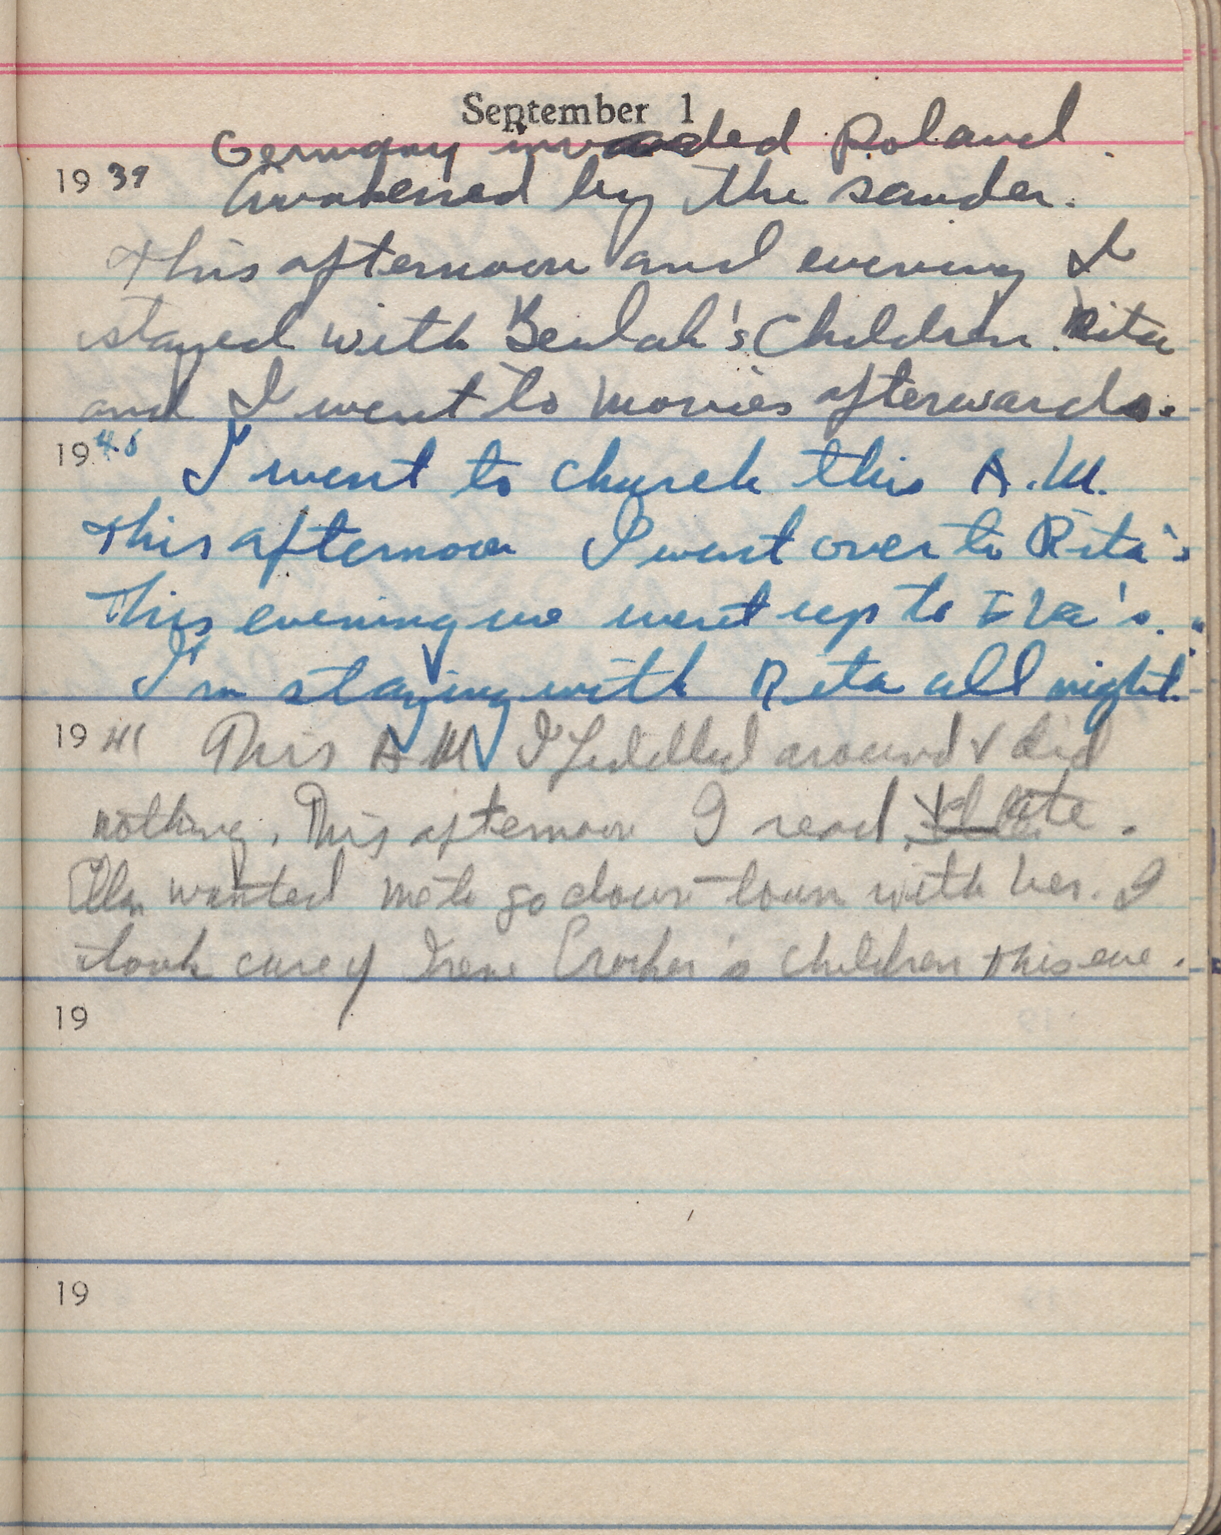 September 1
Germany invaded Poland.
19 39 Awakened by the sander.
This afternoon and evening I
stayed with Beulah's Children. Rita
and I went to movies afterwards.
19 40 I went to church this A.M.
This afternoon I went over to Rita's
This evening we went up to Iva's.
I'm staying with Rita all night.
19 41 This AM I fiddled around & did
nothing. This afternoon I read
Ella wanted me to go down town with her. I
took care of Irene Crocker's children this eve.
19
19